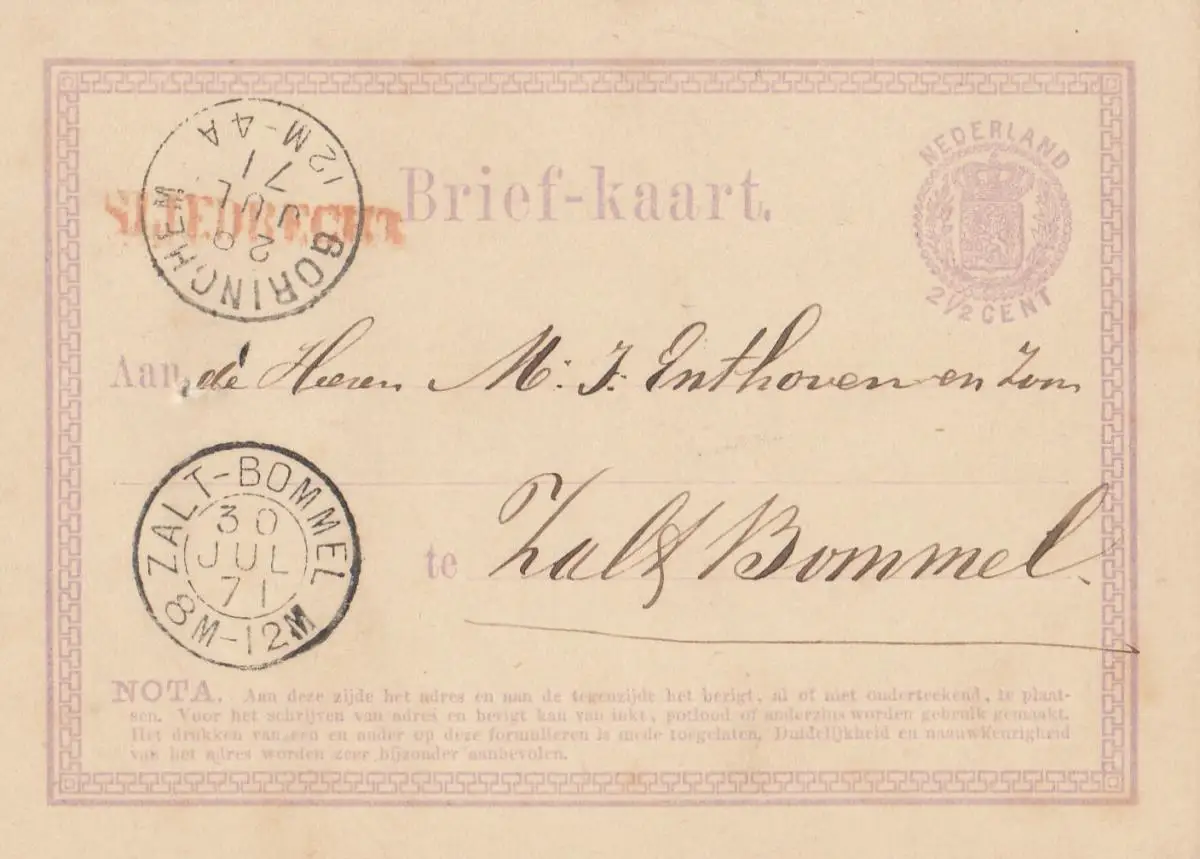 NEDERLAND
2½ CENT
Brief-kaart.
SLIEDRECHT
GORINCHEM
12M-4A
29
JUL
71
Aan de Heeren M. J. Enthoven en Zoon
ZALT-BOMMEL
30
JUL
71
8M-12M
te Zalt Bommel.
NOTA. Aan deze zijde het adres en aan de tegenzijde het berigt, al of niet onderteekend, te plaat-
sen. Voor het schrijven van adres en berigt kan van inkt, potlood of anderzins worden gebruik gemaakt.
Het drukken van een en ander op deze formulieren is mede toegelaten. Duidelijkheid en naauwkeurigheid
van het adres worden zeer bijzonder aanbevolen.